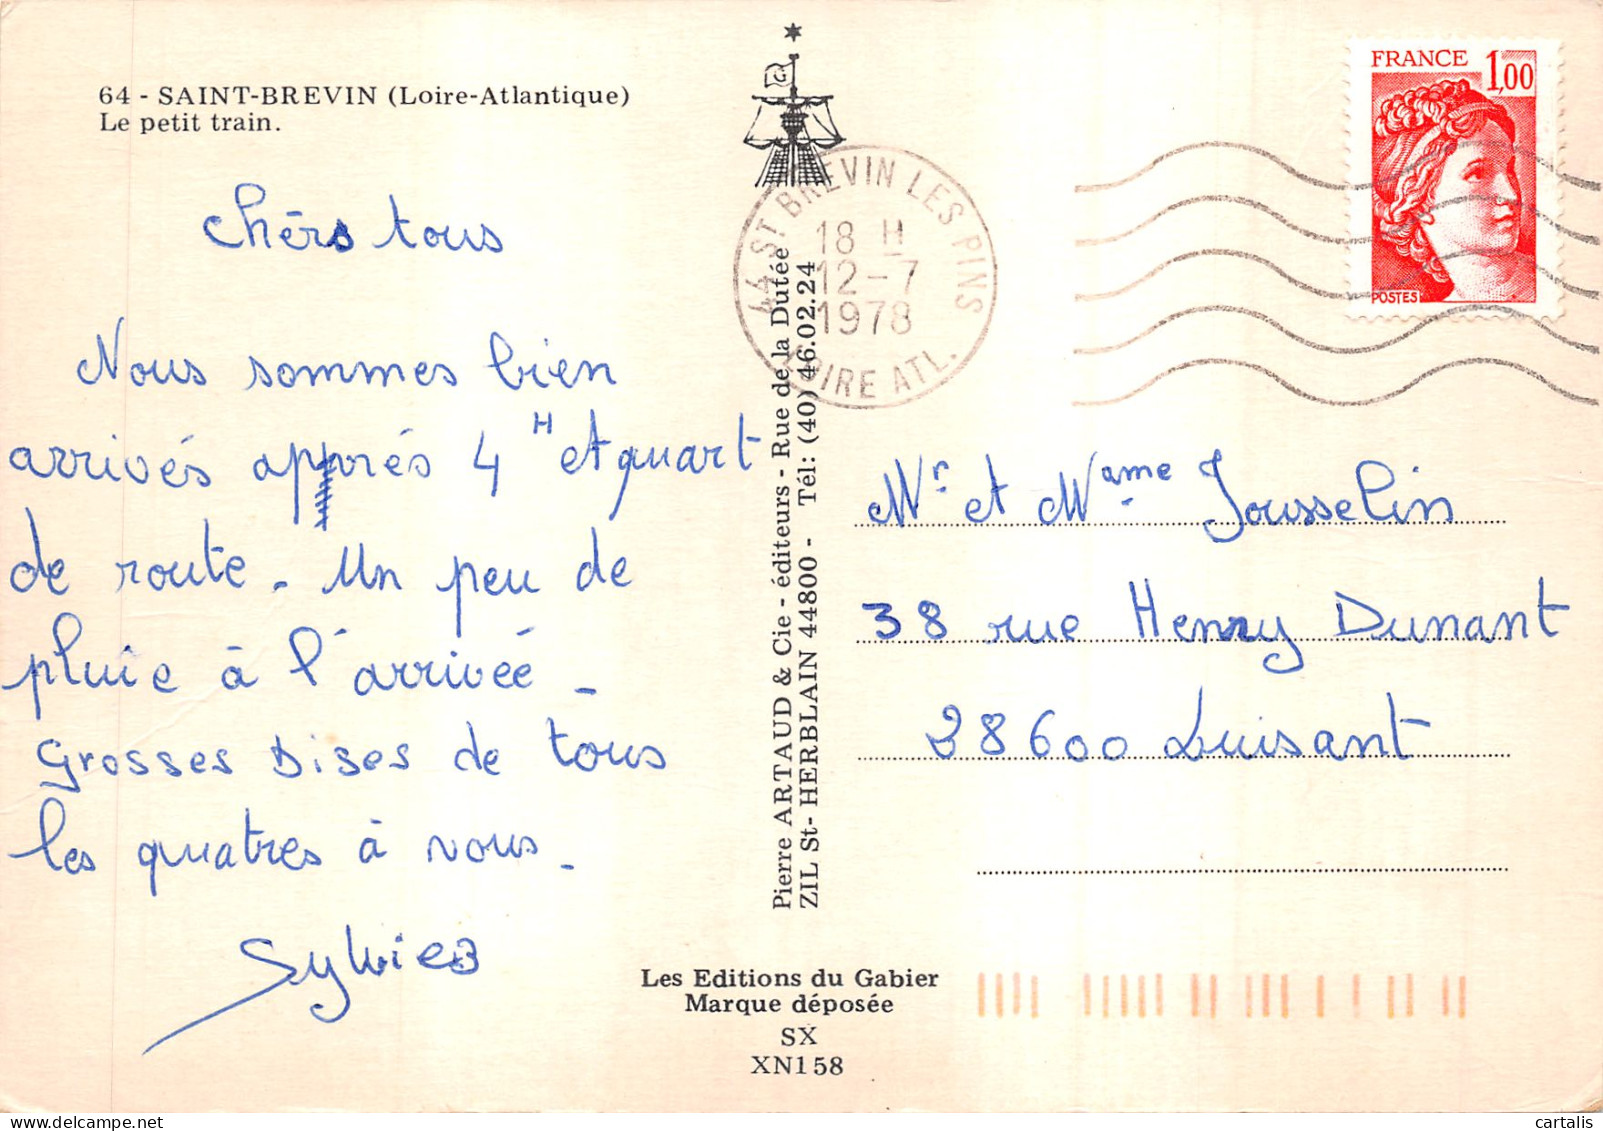 64 - SAINT-BREVIN (Loire-Atlantique)
Le petit train.
Chérs tous
Nous sommes bien
arrivés apprés 4 H et quart
de route - Un peu de
pluie à l'arrivée -
Grosses Bises de tous
les quatres à vous -
Sylvie
Pierre ARTAUD & Cie - éditeurs - Rue de la Dutée
ZIL St- HERBLAIN 44800 - Tél: (40) 46.02.24
Les Editions du Gabier
Marque déposée
SX
XN158
44 ST BREVIN LES PINS
18 H
12-7
1978
LOIRE ATL.
FRANCE 1,00
POSTES
Mr et Mame Jousselin
38 rue Henry Dunant
28600 Luisant
cartalis